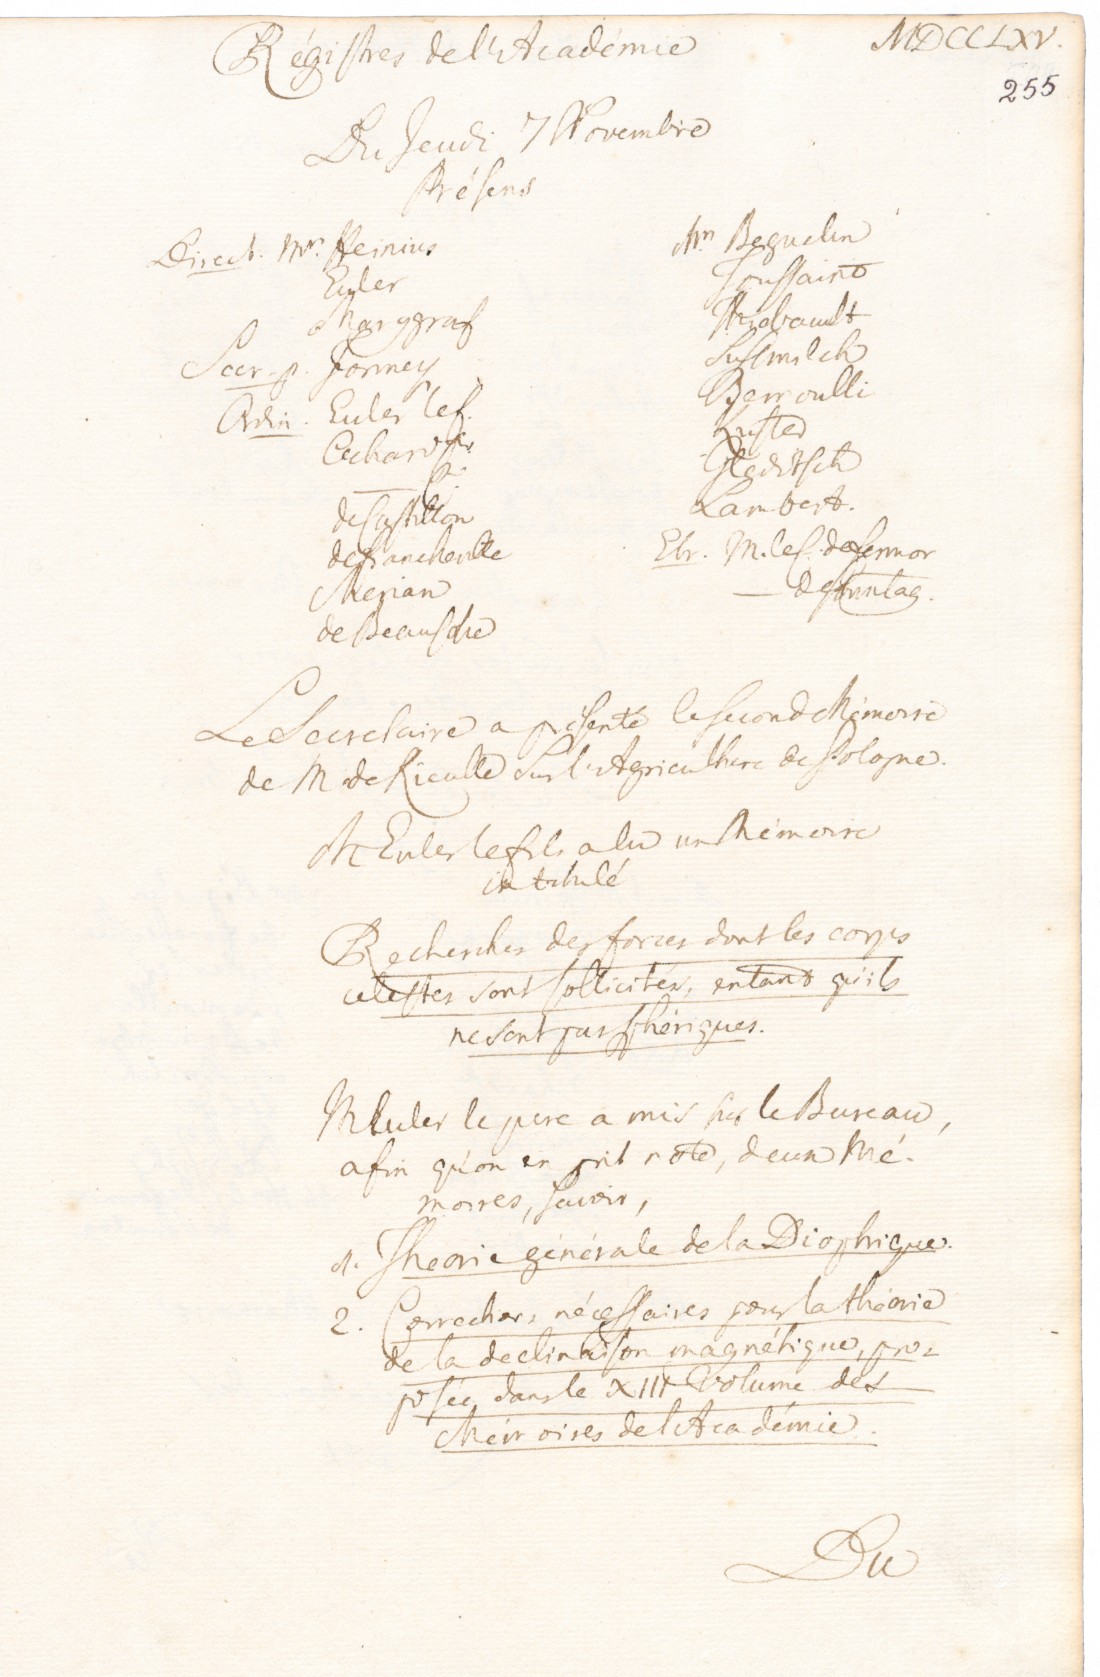 Régistres de l'Académie
MDCCLXV.
255
Du Jeudi 7 Novembre
Présens
Direct. Mrs. Heinius
Euler
Marggraf
Secr. p. Formey
Ordin. Euler le f.
de Castillon
de Francheville
Merian
de Beausobre
Mrs Beguelin
Toussaint
Thiebault
Susmilch
Bernoulli
Kuster
Gleditsch
Lambert.
Etr. M. le C.
Le Secretaire a présenté le second Mémoire
de M. de sur l'Agriculture de Pologne.
M Euler le fils a lu un Mémoire
intitulé
Recherches des forces dont les corps
celestes sont sollicités, entant qu'ils
ne sont pas sphériques.
M Euler le pere a mis sur le Bureau,
afin qu'on en prit note, deux Mé-
moires, savoir,
1. Theorie générale de la Dioptrique.
2. Corrections nécessaires pour la théorie
de la declinaison magnétique, pro-
posée dans le XIII Volume des
Mémoires de l'Académie.
Du